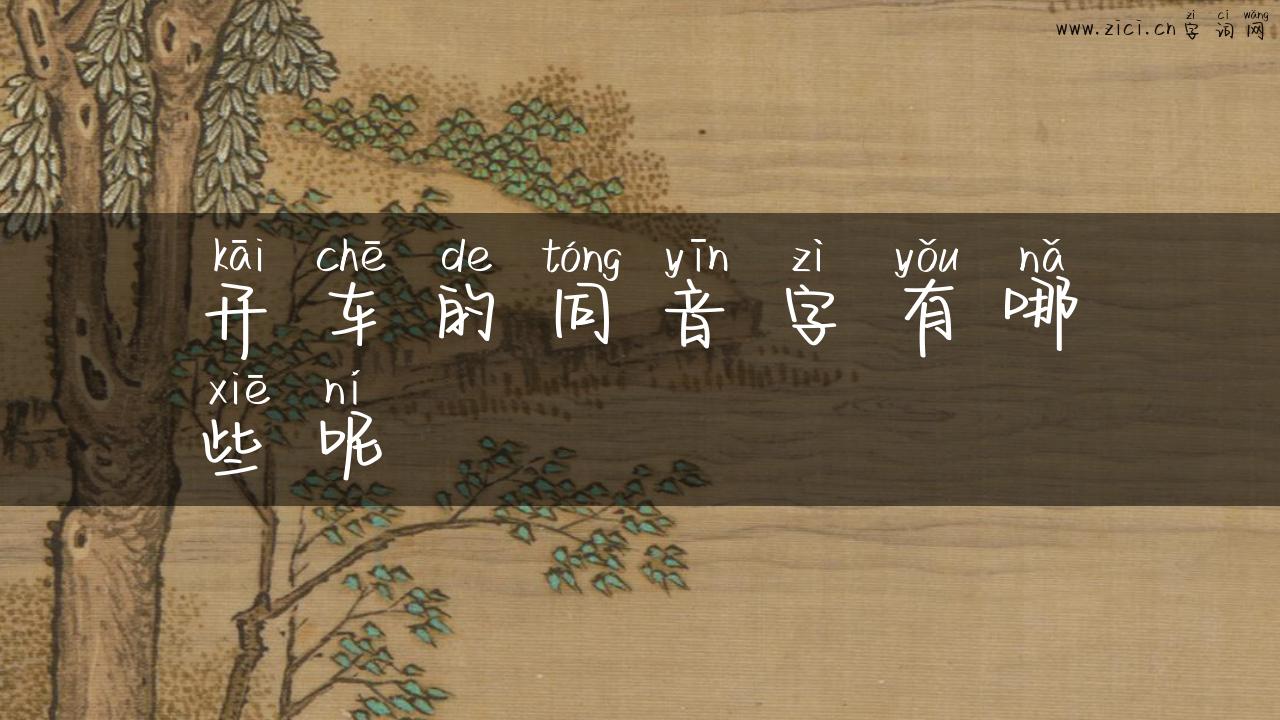 zì cí wǎng
www.zici.cn 字 词 网
kāi chē de tóng yīn zì yǒu nǎ
开 车 的 同 音 字 有 哪
xiē ní
些 呢